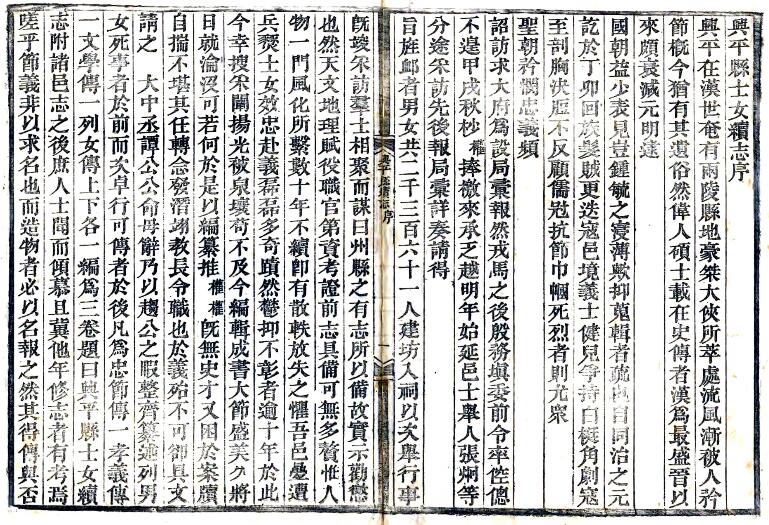 興平縣士女續志序
興平在漢世奄有兩陵縣地豪桀大俠所萃處流風漸被人矜
節槪今猶有其遺俗然偉人碩士載在史傳者漢爲最盛晉以
來頗衰減元明逮
國朝益少表見豈鍾毓之寖薄歟抑蒐輯者疏也自同治之元
訖於丁卯回族髮賊更迭寇邑境義士健兒爭持白梃角劇寇
至剖胸決脰不反顧儒冠抗節巾幗死烈者則尤衆
聖朝矜憫忠義頻
詔訪求大府爲設局彙報然戎馬之後殷務塡委前令率倥傯
不遑甲戌秋杪權捧檄來承乏越明年始延邑士舉人張炯等
分途采訪先後報局彙詳奏請得
旨旌卹者男女共二千三百六十一人建坊入祠以次舉行事
旣竣采訪羣士相聚而謀曰州縣之有志所以備故實示勸懲
也然天文地理賦役職官第資考證前志具備可無多贅惟人
物一門風化所繫數十年不續卽有散軼放失之懼吾邑疊遭
兵燹士女效忠赴義磊磊多奇蹟然鬱抑不彰者逾十年於此
今幸搜采闡揚光被泉壤苟不及今編輯成書大節盛美久將
日就淪沒可若何於是以編纂推權權旣無史才又困於案牘
自揣不堪其任轉念發潛翊教長令職也於義殆不可卻具文
請之 大中丞譚公公命毋辭乃以趨公之暇整齊纂述列男
女死事者於前而次卓行可傳者於後凡爲忠節傳一孝義傳
一文學傳一列女傳上下各一編爲三卷題曰興平縣士女續
志附諸邑志之後庶人士閱而傾慕且冀他年修志者有考焉
嗟乎節義非以求名也而造物者必以名報之然其得傳與否
興平縣續志 序
一